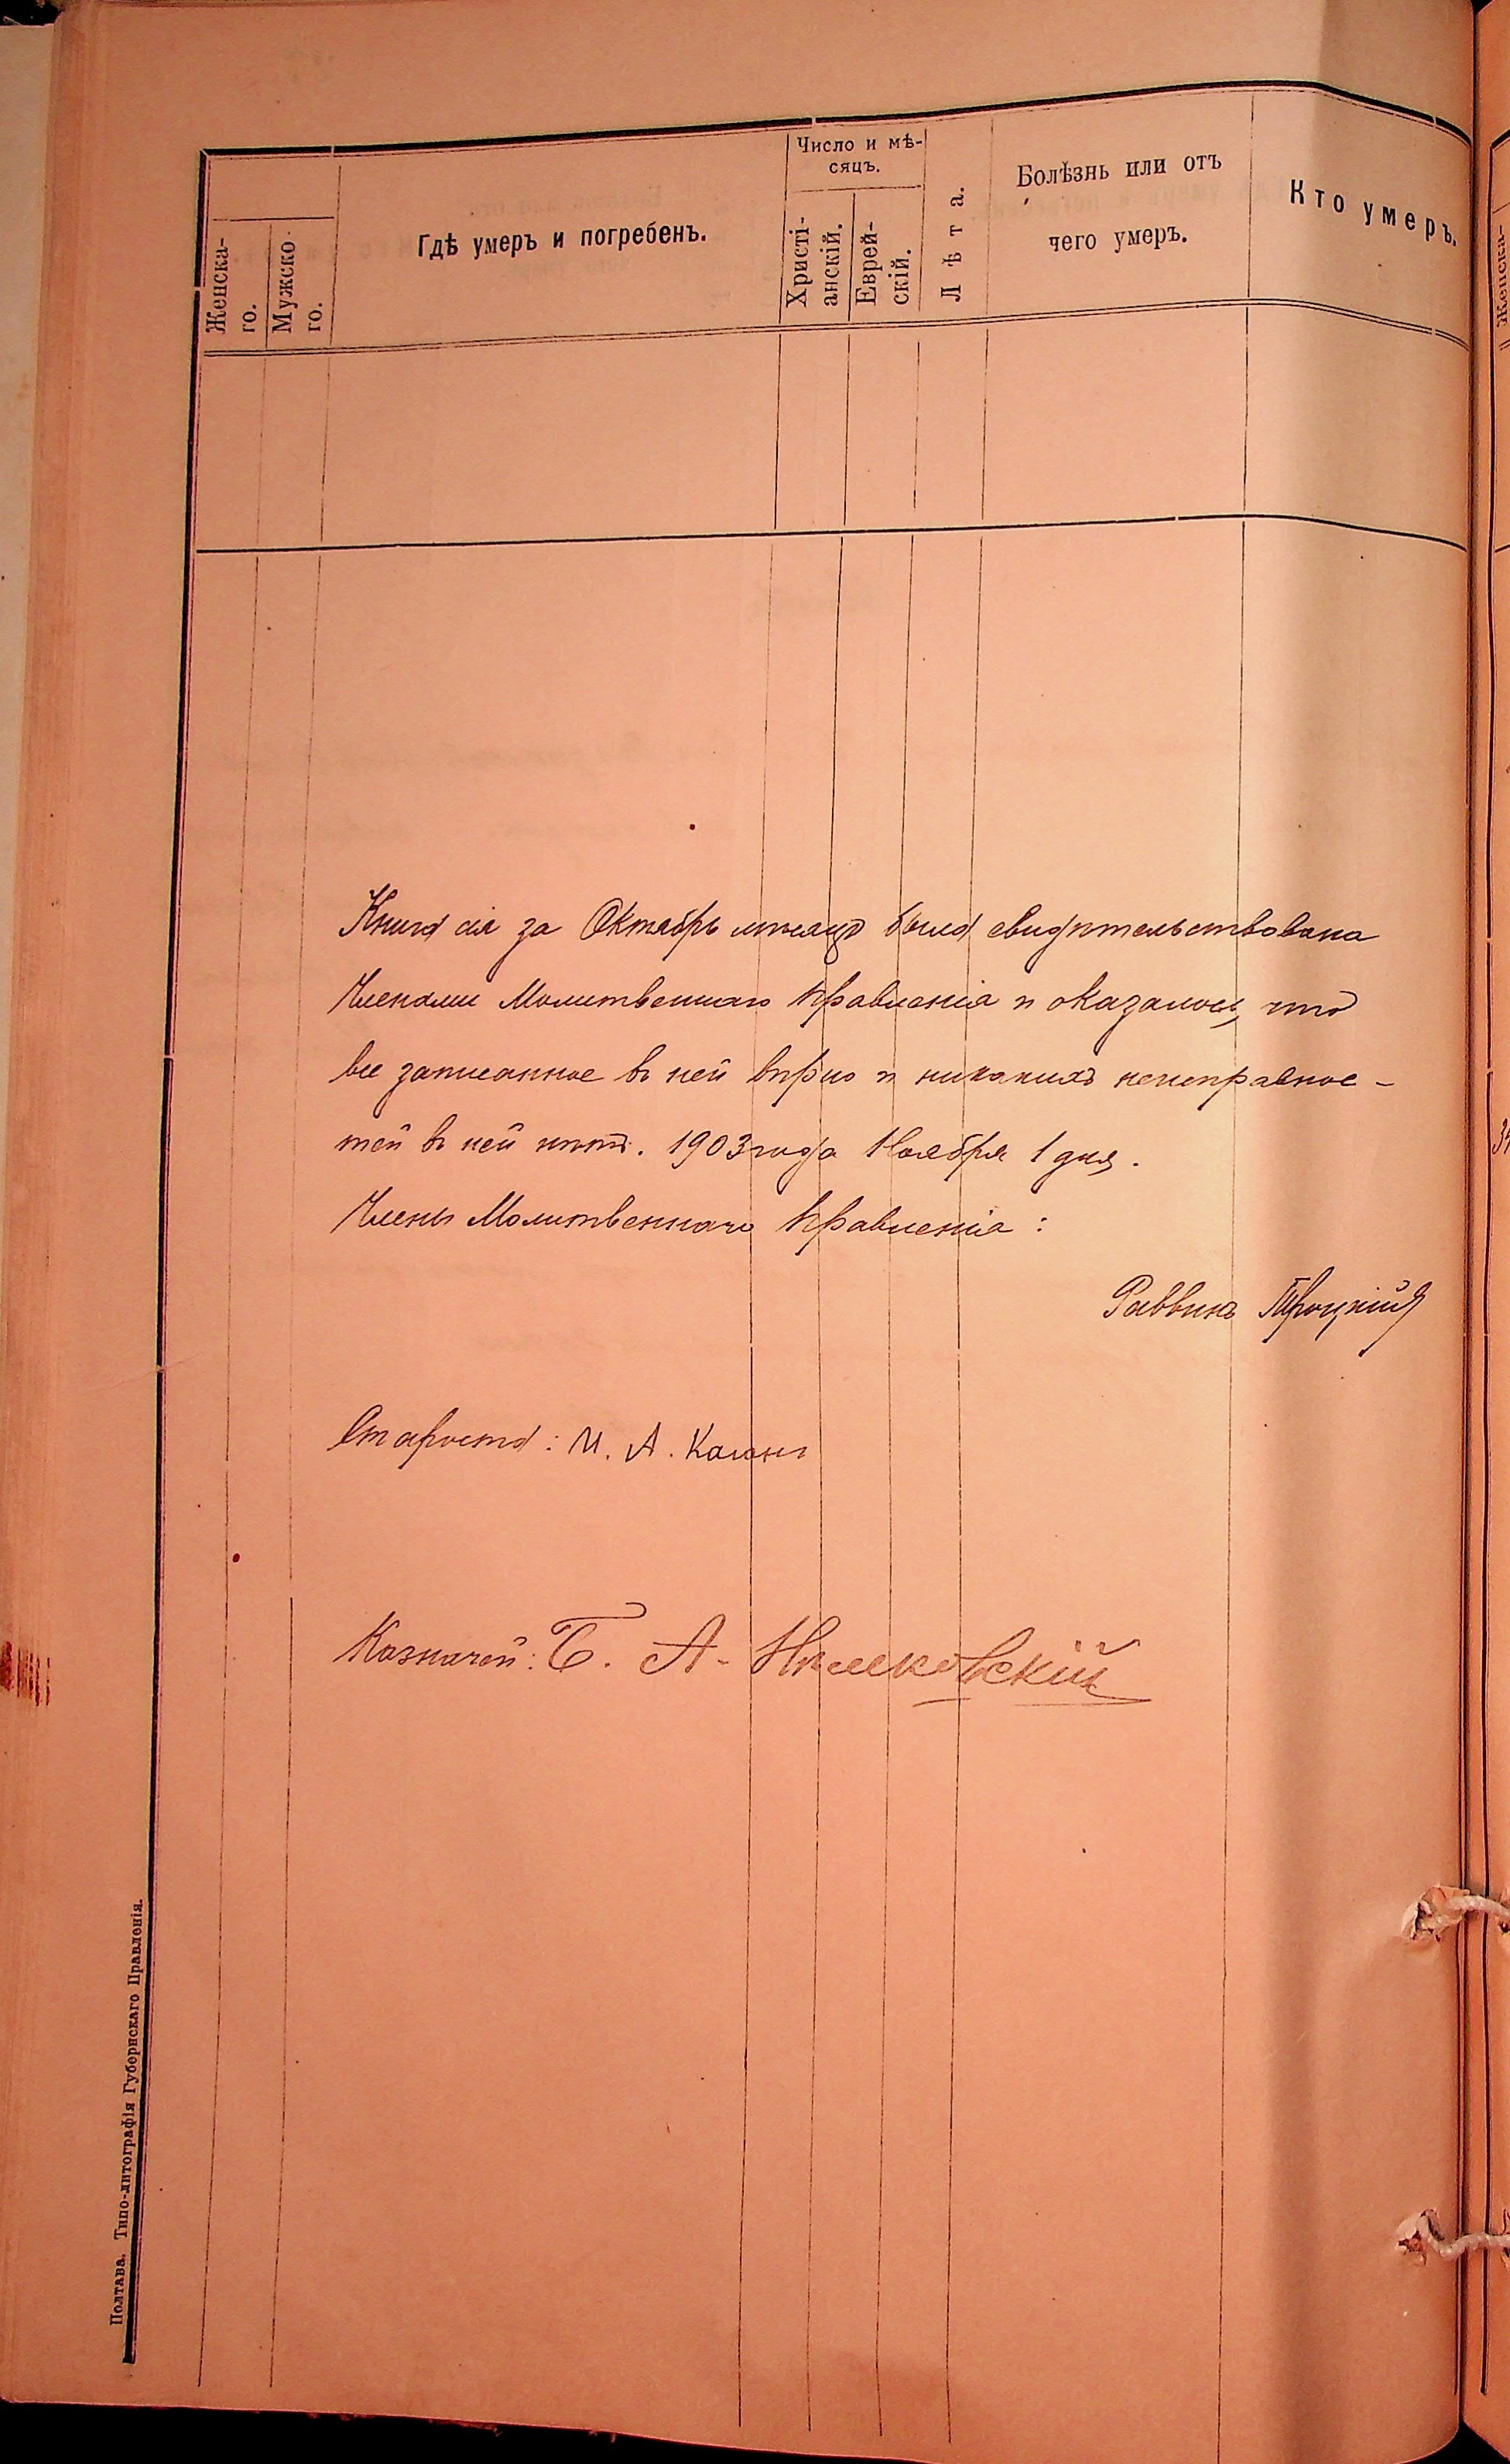 Женска-
го.
Мужско-
го.
Гдѣ умеръ и погребенъ.
Число и мѣ-
сяцъ.
Христі-
анскій.
Еврей-
скій.
Лѣта.
Болѣзнь или отъ
чего умеръ.
Кто умеръ.
Женска-
Книга сія за Октябрь мѣсяцъ была свидѣтельствована
Членами Молитвеннаго Правленія и оказалось, что
все записанное въ ней вѣрно и никакихъ неисправнос-
тей въ ней нѣтъ. 1903 года Ноября 1 дня.
Члены Молитвеннаго Правленія:
Раввинъ Троцкій
Староста: И. А. Каганъ
Казначей: Б. А.
Полтава. Типо-литографія Губернскаго Правленія.